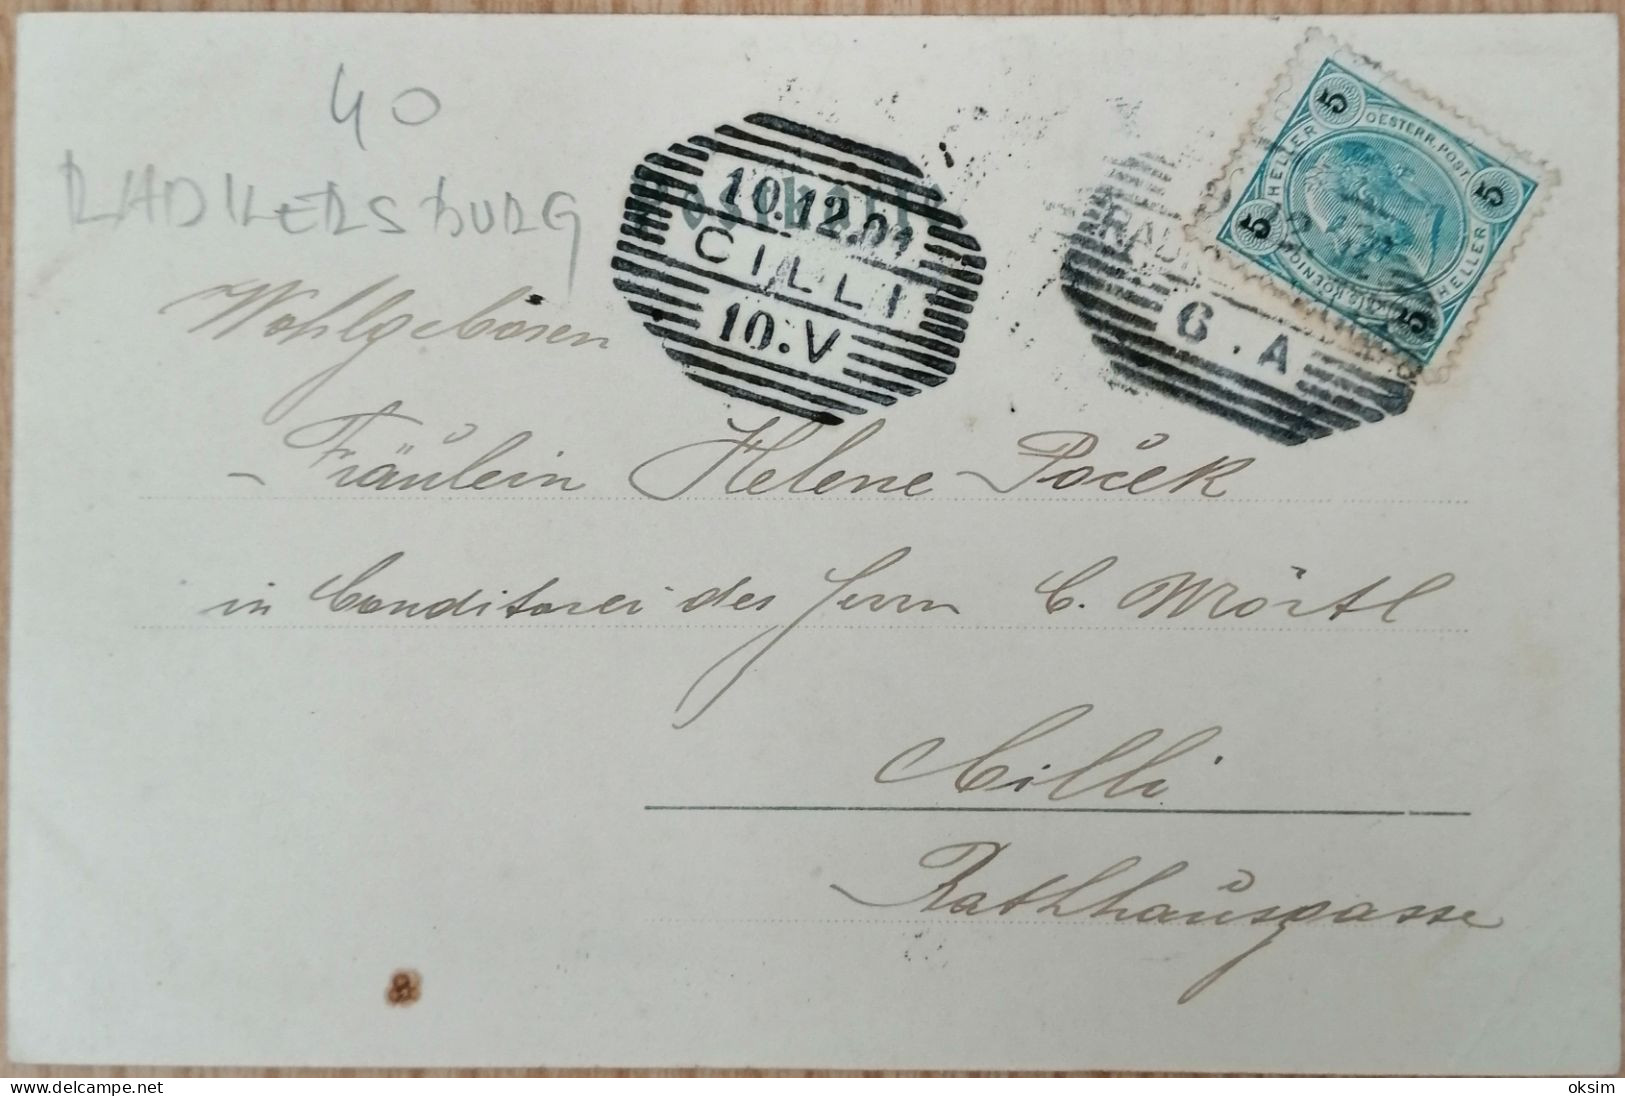 40
RADKERSBURG
10.12.01
CILLI
10.V
RADK
6.A
5 HELLER 5
OESTERR. POST.
HELLER
5
5
Wohlgeboren
Fräulein Helene Poček
in Conditorei des Herrn C. Wörtl
Cilli
Rathhausgasse
oksim
www.delcampe.net